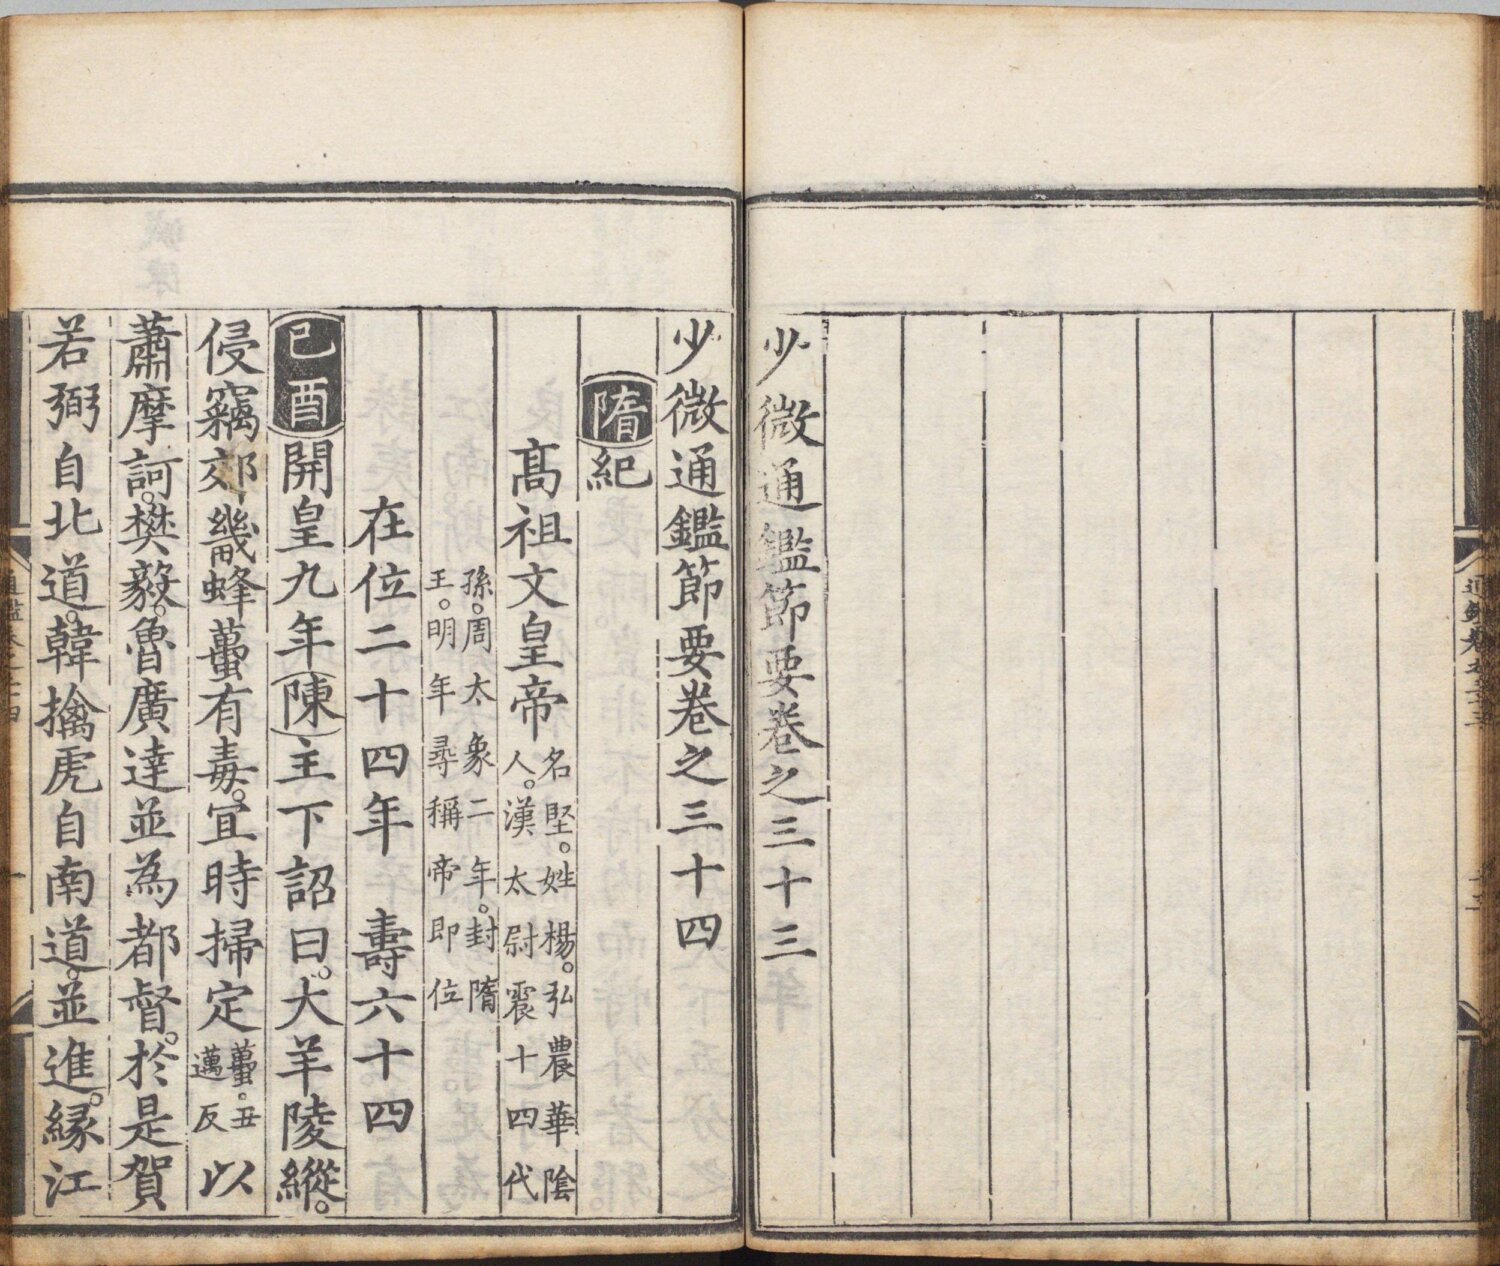 少微通鑑節要卷之三十三
少微通鑑節要卷之三十四
隋紀
髙祖文皇帝名堅。姓楊。弘農華陰人。漢太尉震十四代
孫。周太象二年。封隋王。明年尋稱帝即位
在位二十四年　壽六十四
己酉開皇九年陳主下詔曰。犬羊陵縱。
侵竊郊畿蜂蠆有毒。宜時掃定蠆。丑邁反以
蕭摩訶。樊毅。魯廣達並為都督。於是賀
若弼自北道。韓擒虎自南道。並進。緣江